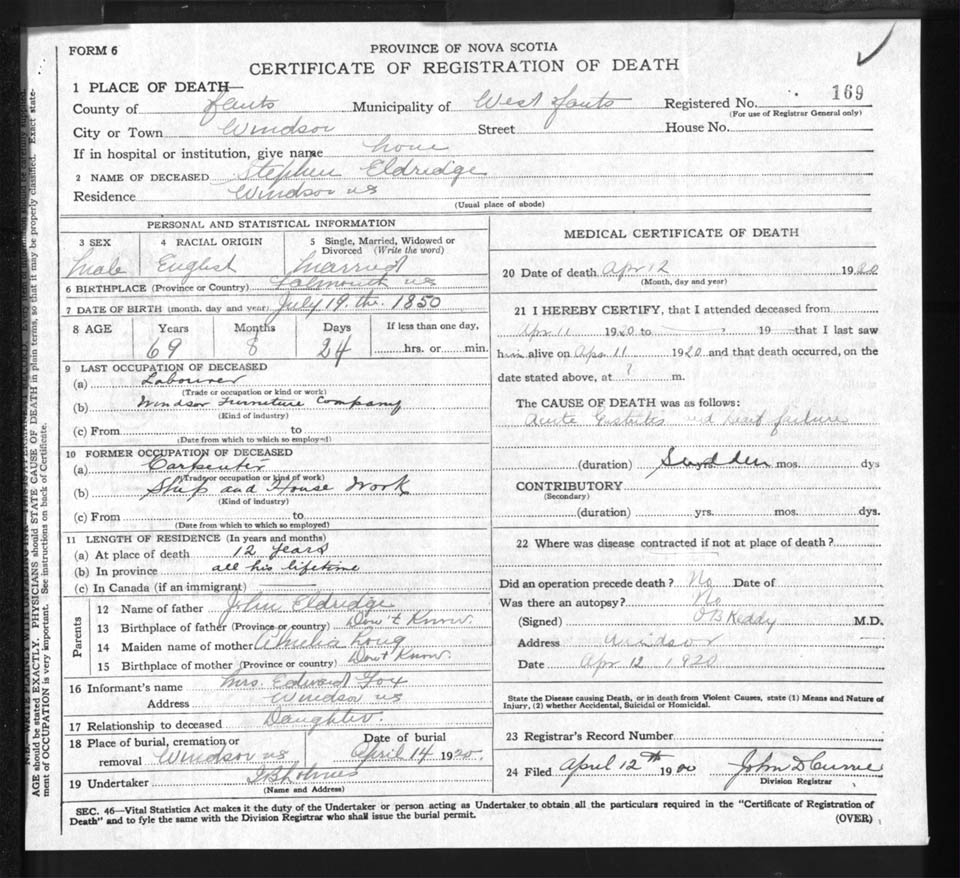 FORM 6
PROVINCE OF NOVA SCOTIA
CERTIFICATE OF REGISTRATION OF DEATH
1 PLACE OF DEATH—
County of Hants Municipality of West Hants Registered No. 169
(For use of Registrar General only)
City or Town Windsor Street House No.
If in hospital or institution, give name home
2 NAME OF DECEASED Stephen Eldridge
Residence Windsor NS
(Usual place of abode)
PERSONAL AND STATISTICAL INFORMATION
3 SEX 4 RACIAL ORIGIN 5 Single, Married, Widowed or
Divorced (Write the word)
Male English Married
6 BIRTHPLACE (Province or Country) Falmouth NS
7 DATE OF BIRTH (month, day and year) July 19. th. 1850
8 AGE Years Months Days If less than one day,
69 8 24 hrs. or min.
9 LAST OCCUPATION OF DECEASED
(a) Labourer
(Trade or occupation or kind or work)
(b) Windsor Furniture Company
(Kind of industry)
(c) From to
(Date from which to which so employed)
10 FORMER OCCUPATION OF DECEASED
(a) Carpenter
(Trade or occupation or kind of work)
(b) Ship and House Work
(Kind of industry)
(c) From to
(Date from which to which so employed)
11 LENGTH OF RESIDENCE (In years and months)
(a) At place of death 12 years
(b) In province all his lifetime
(c) In Canada (if an immigrant)
Parents
12 Name of father John Eldridge
13 Birthplace of father (Province or country) Don't Know.
14 Maiden name of mother Amelia Long
15 Birthplace of mother (Province or country) Don't Know.
16 Informant's name Mrs. Edward Fox
Address Windsor NS
17 Relationship to deceased Daughter.
18 Place of burial, cremation or removal Windsor NS
Date of burial April 14 1920.
19 Undertaker Holmes
(Name and Address)
MEDICAL CERTIFICATE OF DEATH
20 Date of death Apr 12 1920
(Month, day and year)
21 I HEREBY CERTIFY, that I attended deceased from
Apr 11 1920 to 19 that I last saw
him alive on Apr 11 1920 and that death occurred, on the
date stated above, at ? m.
The CAUSE OF DEATH was as follows:
Acute Gastritis and heart failure
(duration) Sudden yrs. mos. dys
CONTRIBUTORY
(Secondary)
(duration) yrs. mos. dys.
22 Where was disease contracted if not at place of death?
Did an operation precede death? No Date of
Was there an autopsy? No
(Signed) O B Keddy M.D.
Address Windsor
Date Apr 12 1920
State the Disease causing Death, or in death from Violent Causes, state (1) Means and Nature of
Injury, (2) whether Accidental, Suicidal or Homicidal.
23 Registrar's Record Number
24 Filed April 12th 19 John D
Division Registrar
SEC. 46—Vital Statistics Act makes it the duty of the Undertaker or person acting as Undertaker to obtain all the particulars required in the "Certificate of Registration of
Death" and to fyle the same with the Division Registrar who shall issue the burial permit. (OVER)
AGE should be stated EXACTLY. PHYSICIANS should STATE CAUSE OF DEATH in plain terms, so that it may be properly classified. Exact state-
ment of OCCUPATION is very important. See instructions on back of Certificate.